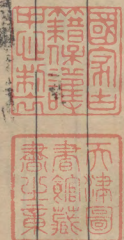 國家古
籍保護
中心制
天津圖
書館藏
書之章